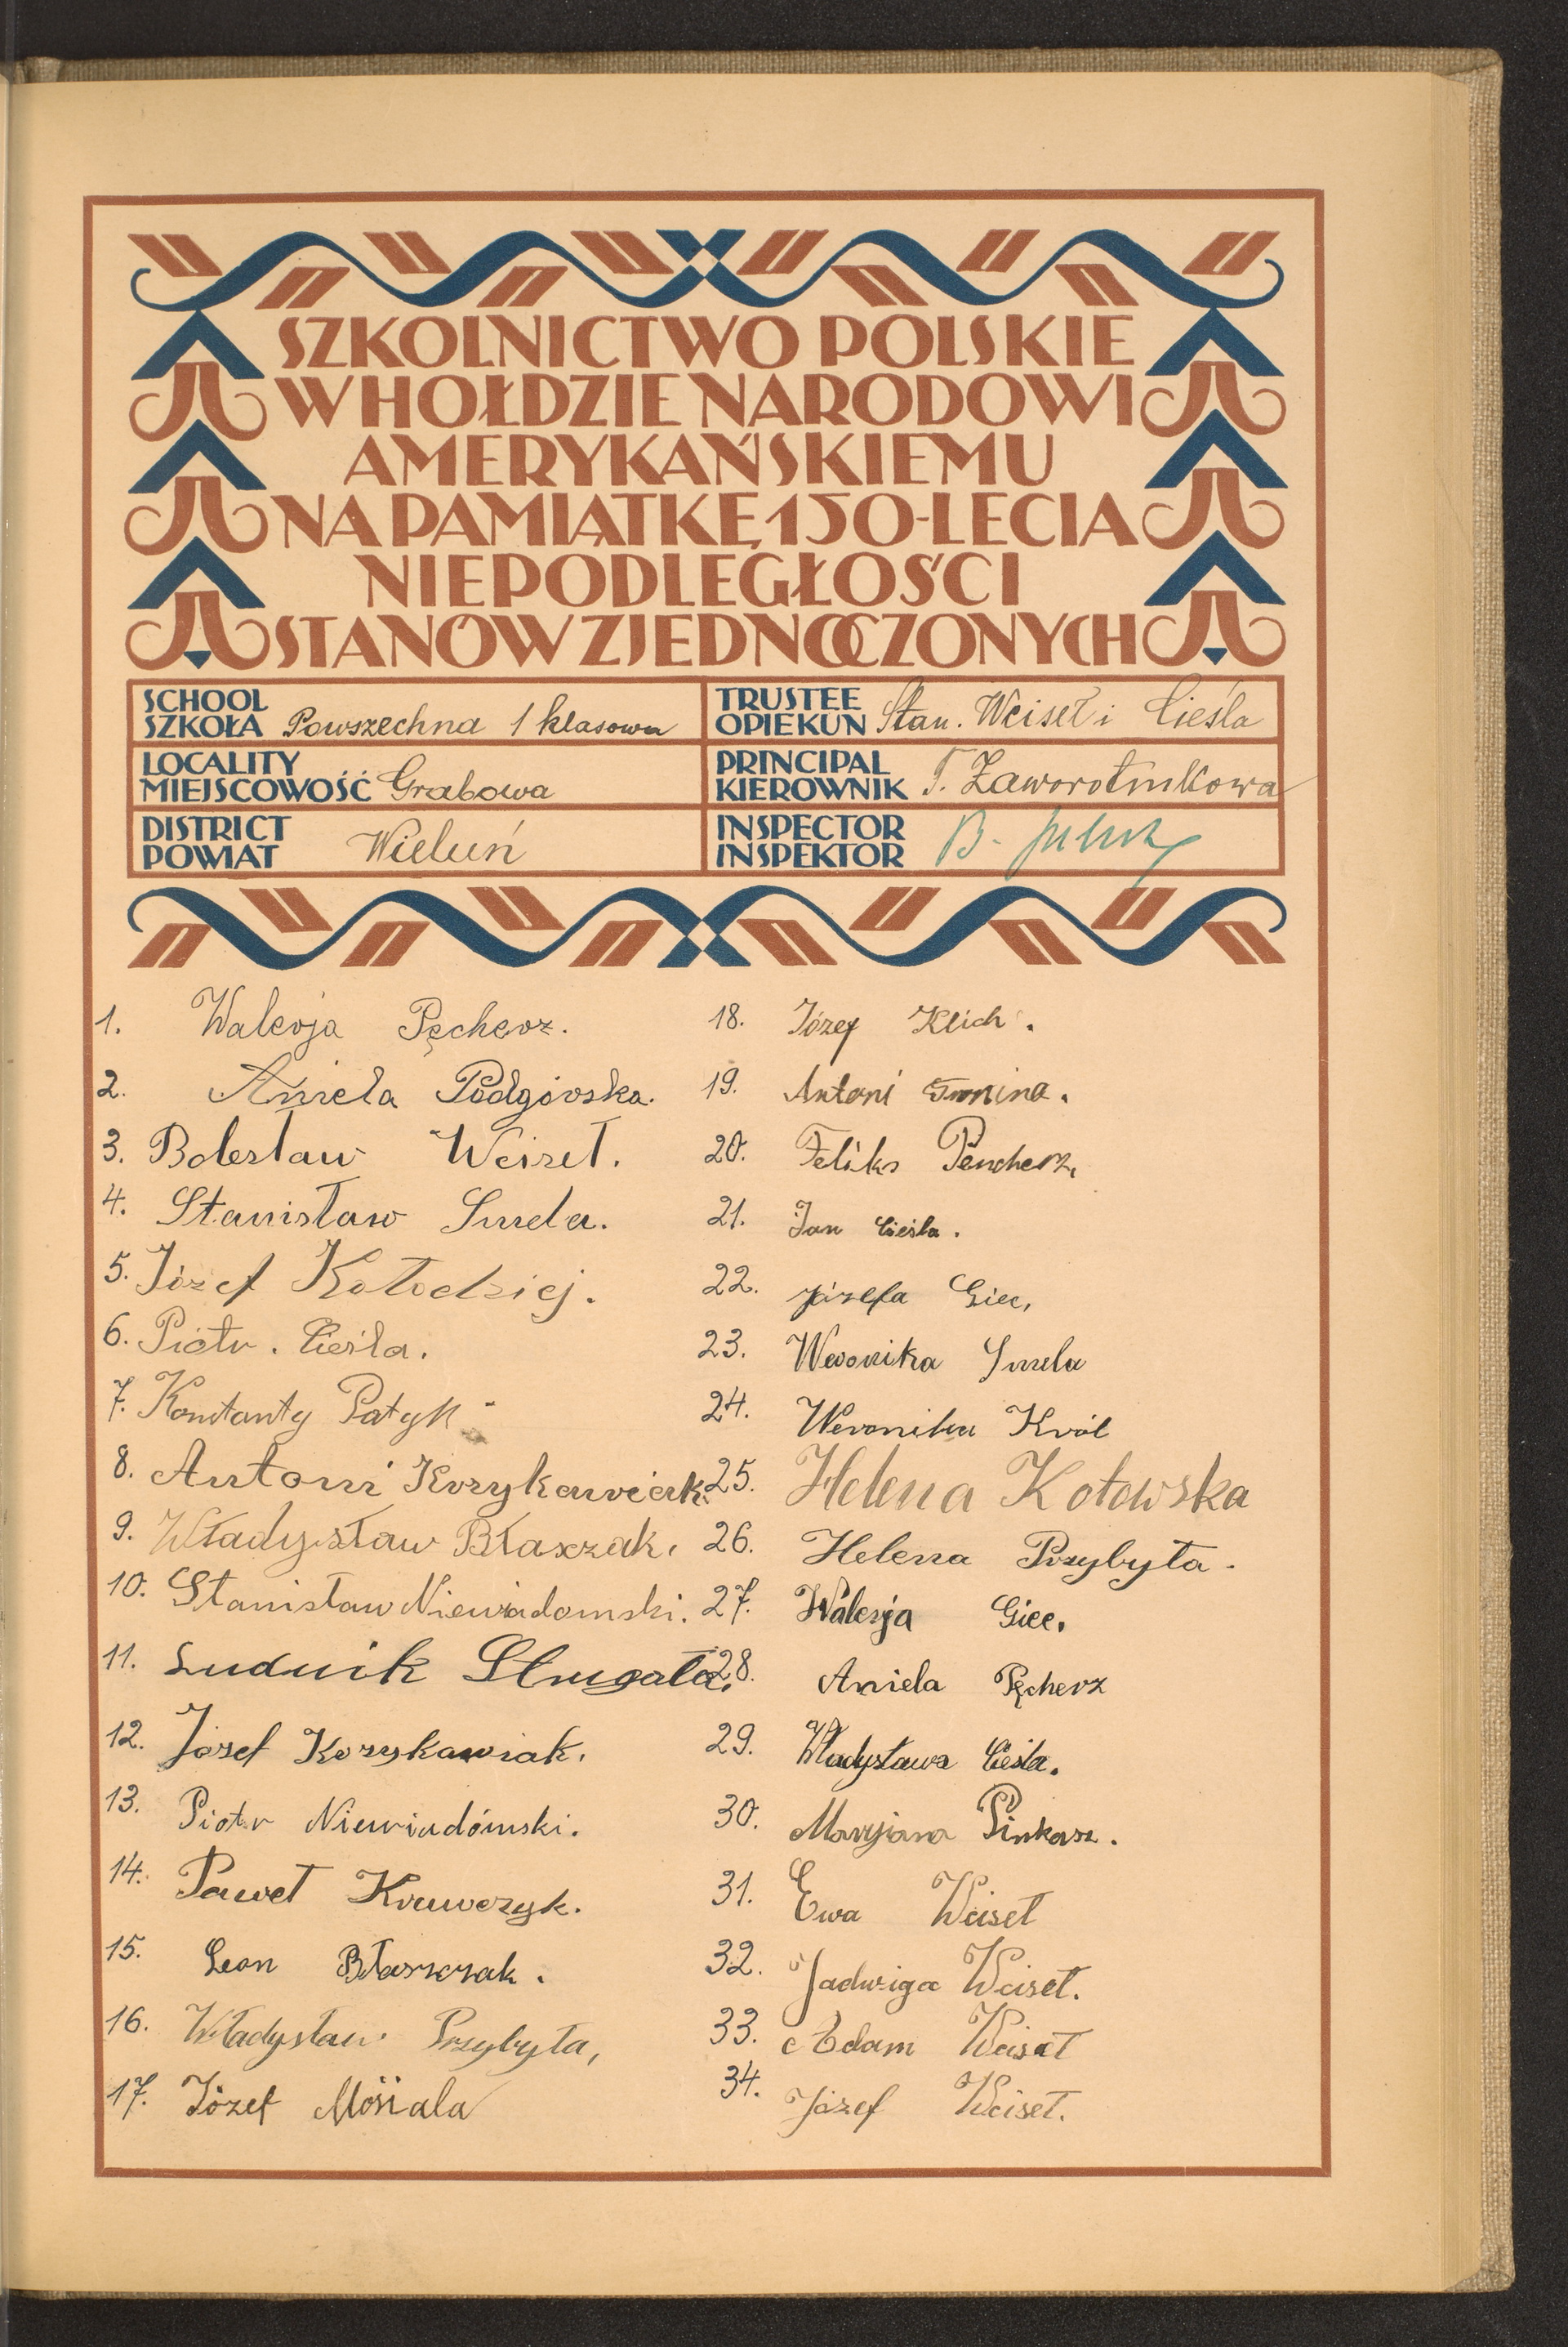 SZKOLNICTWO POLSKIE
W HOŁDZIE NARODOWI
AMERYKAŃSKIEMU
NA PAMIĄTKĘ 150-LECIA
NIEPODLEGŁOŚCI
STANÓW ZJEDNOCZONYCH
SCHOOL
SZKOŁA Powszechna 1 klasowa
TRUSTEE
OPIEKUN Stan. Weiseł i Cieśla
LOCALITY
MIEJSCOWOŚĆ Grabowa
PRINCIPAL
KIEROWNIK T. Zaworotnikowa
DISTRICT
POWIAT Wieluń
INSPECTOR
INSPEKTOR B.
1. Walerja Pęcherz.
2. Aniela Podgórska.
3. Bolesław Weiseł.
4. Stanisław Smela.
5. Józef Kołodziej.
6. Piotr. Cieśla.
7. Konstanty Patyk
8. Antoni Krzykawiak.
9. Władysław Błaszzak.
10. Stanisław Niewiadomski.
11. Ludwik Strugała.
12. Józef Krzykawiak.
13. Piotr Niewiadómski.
14. Paweł Krawczyk.
15. Leon Błaszczak.
16. Władysław Przybyła,
17. Józef Mośiala
18. Józef Klich.
19. Antoni
20. Feliks Pencherz,
21. Jan Cieśla.
22. Józefa Giec,
23. Weronika Smela
24. Weronika Król
25. Helena Kotowska
26. Helena Przybyła.
27. Walerja Giec.
28. Aniela Pęcherz
29. Władysława Cieśla.
30. Maryjana Pinkosz.
31. Ewa Weiseł
32. Jadwiga Weiseł.
33. Adam Weiseł
34. Józef Weiseł.